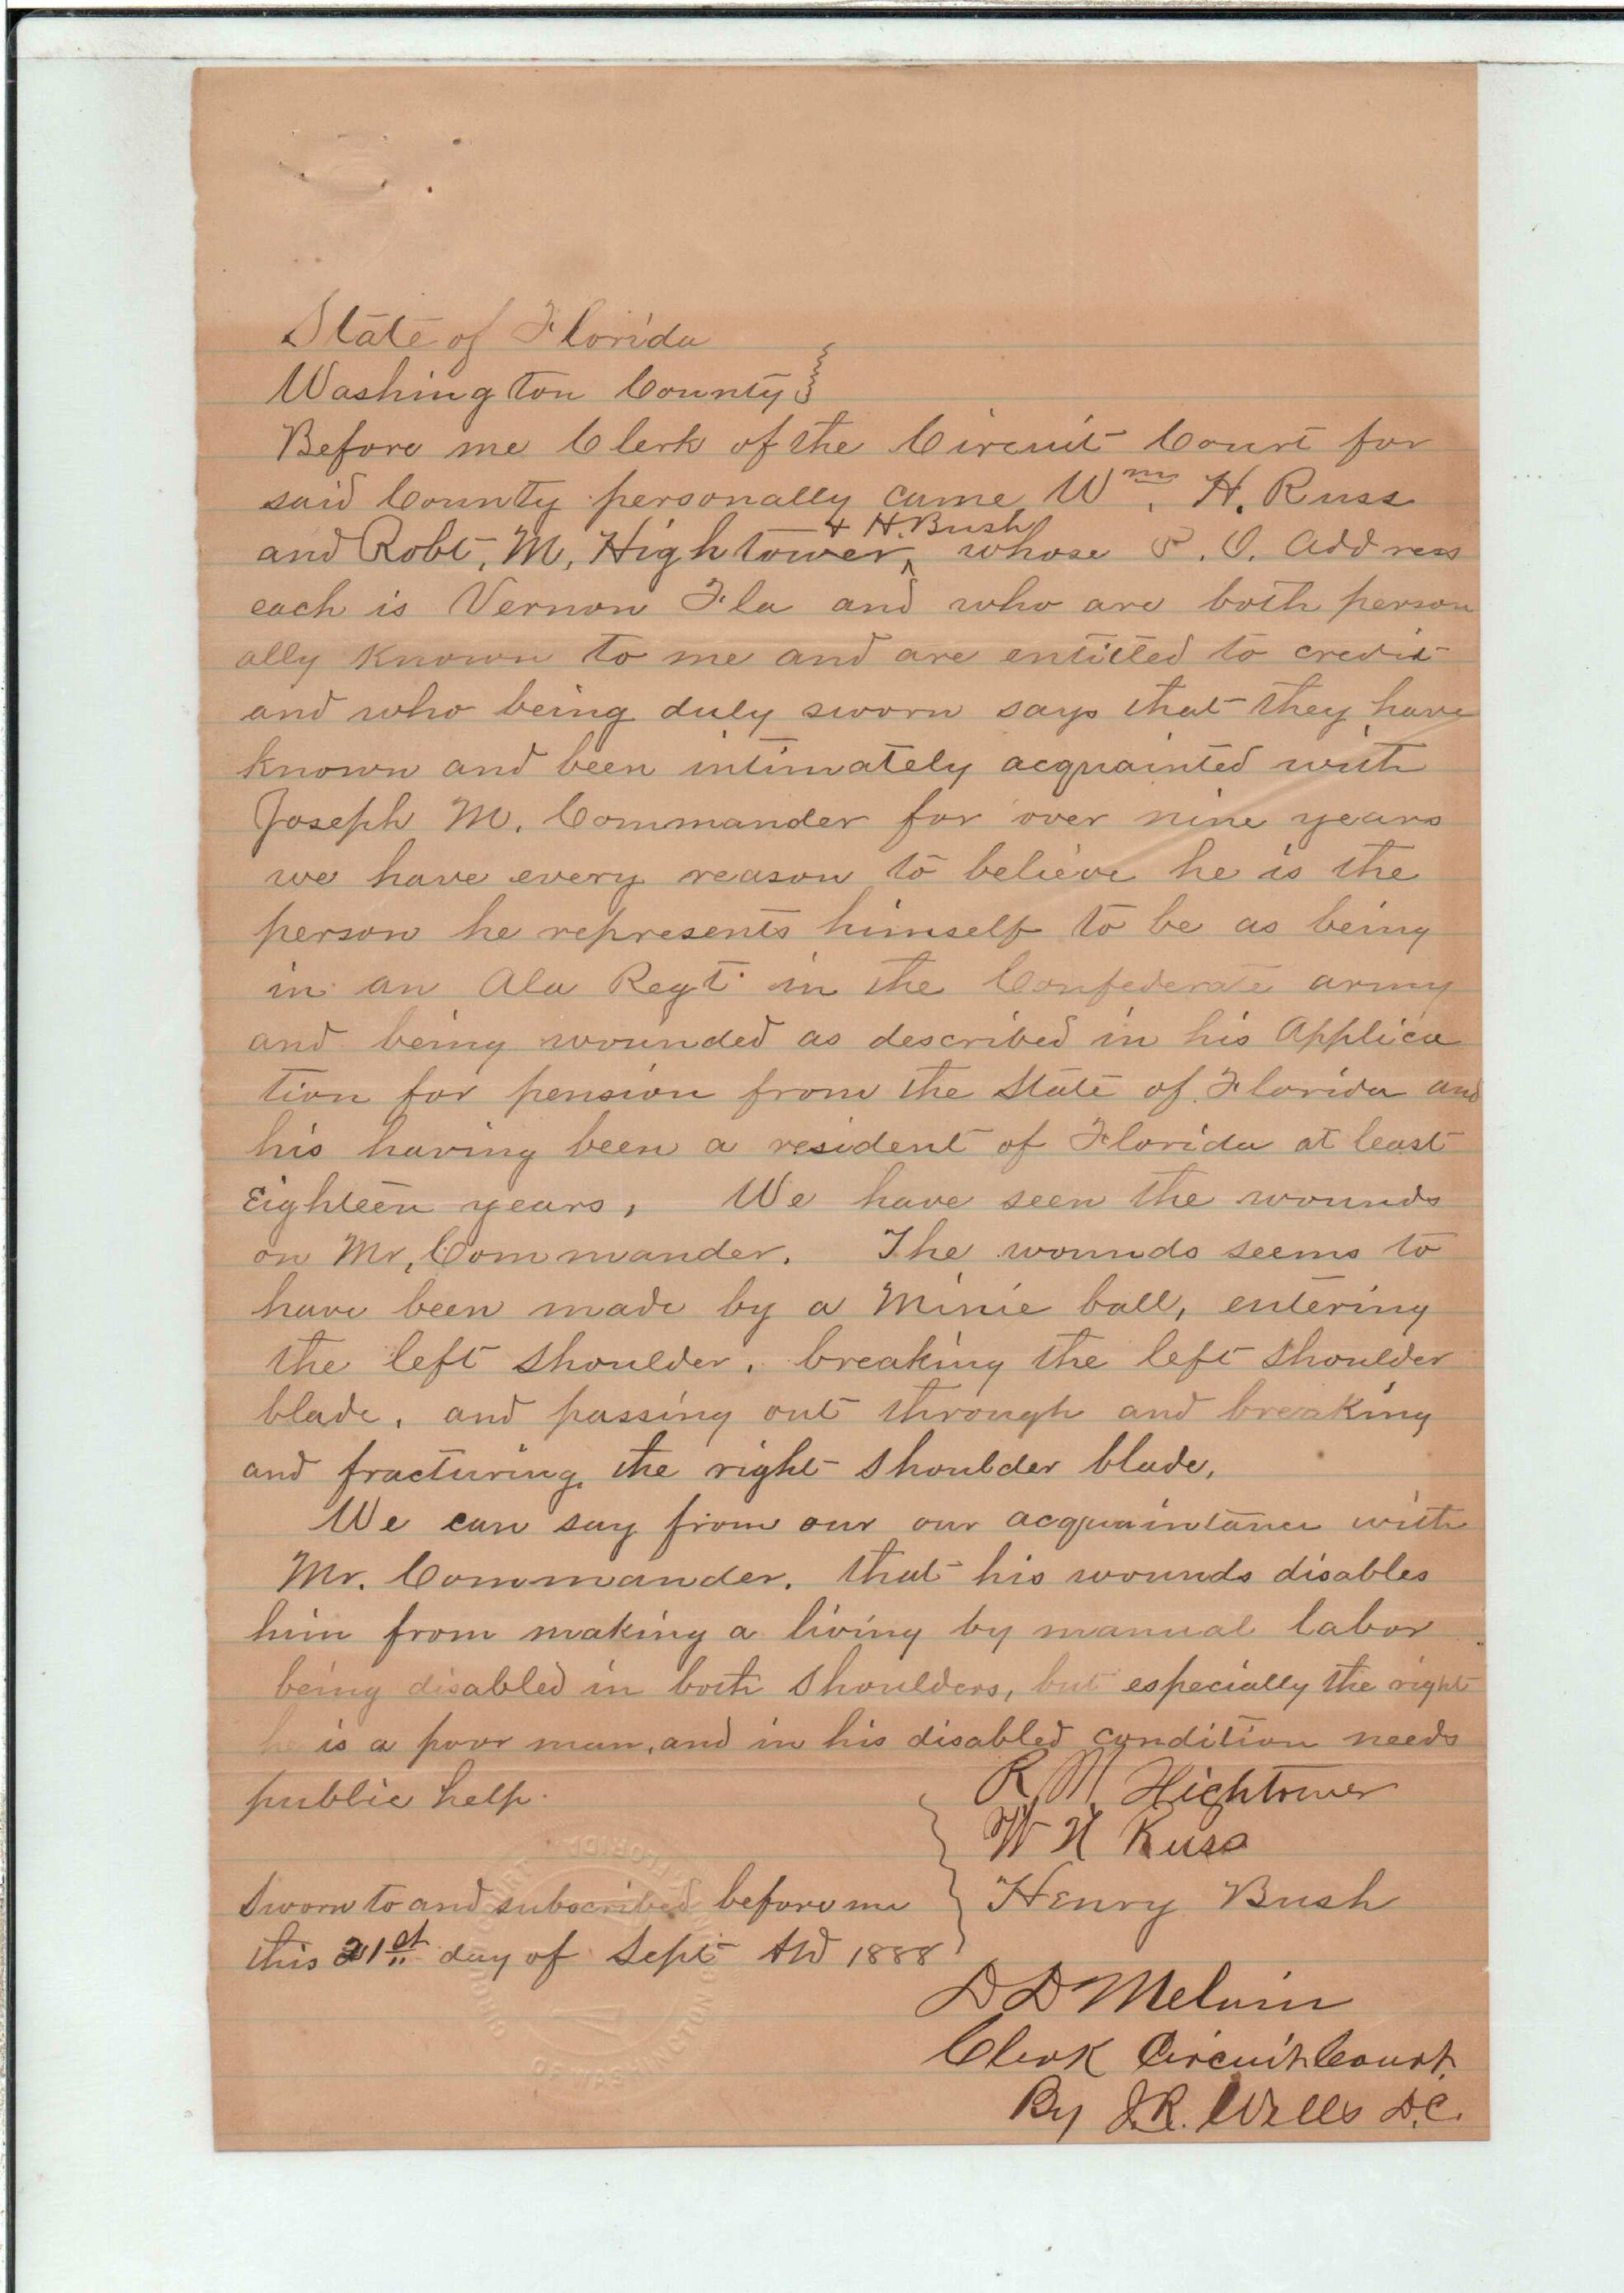 State of Florida
Washington County }
Before me Clerk of the Circuit Court for
said County personally came Wm. H. Russ
& H. Bush
and Robt. M. Hightower ^ whose P. O. Address
each is Vernon Fla and who are both person
ally known to me and are entitled to credit
and who being duly sworn says that they have
known and been intimately acquainted with
Joseph M. Commander for over nine years
we have every reason to believe he is the
person he represents himself to be as being
in an Ala Regt in the Confederate army
and being wounded as described in his Applica
tion for pension from the State of Florida and
his having been a resident of Florida at least
Eighteen years, We have seen the wounds
on Mr. Commander. The wounds seems to
have been made by a Minie ball, entering
the left shoulder, breaking the left shoulder
blade, and passing out through and breaking
and fracturing the right shoulder blade,
We can say from our our acquaintance with
Mr. Commander. that his wounds disables
him from making a living by manual labor
being disabled in both shoulders, but especially the right
he is a poor man, and in his disabled condition needs
public help.
R. M. Hightower
W H Russ
Henry Bush
Sworn to and subscribed before me
this 21st day of Sept AD 1888
D D Melvin
Clerk Circuit Court.
By J. R. Wells D.C.